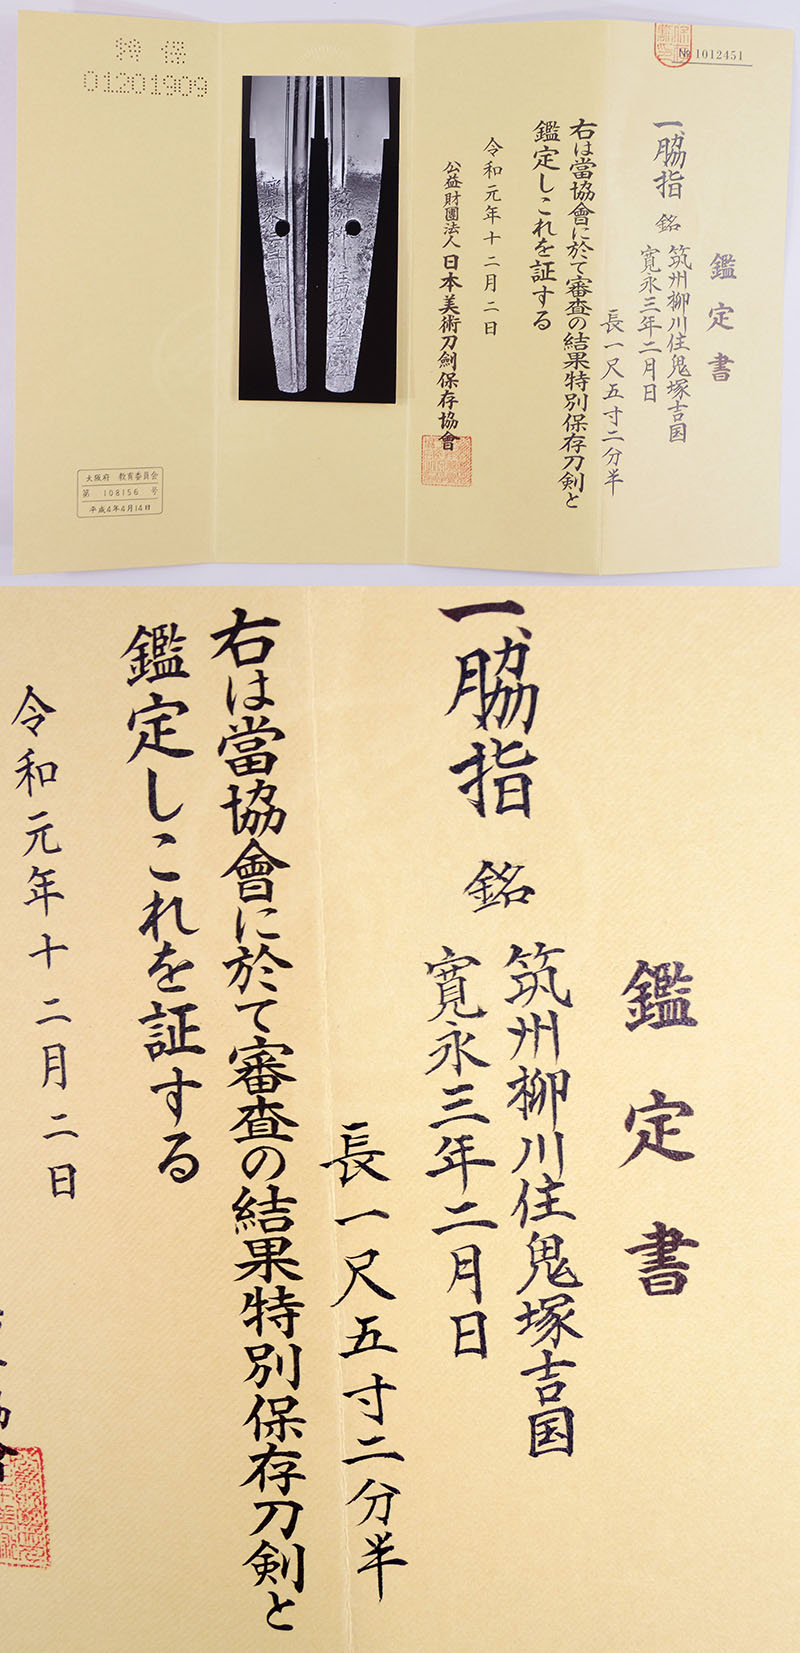 № 1012451
鑑定書
一、脇指 銘 筑州柳川住鬼塚吉国
寛永三年二月日
長一尺五寸二分半
右は當協會に於て審査の結果特別保存刀剣と
鑑定しこれを証する
令和元年十二月二日
公益財團法人 日本美術刀劍保存協會
特 保
01201909
大阪府 教育委員会
第 108156 号
平成4年4月14日
鑑定書
一、脇指 銘 筑州柳川住鬼塚吉国
寛永三年二月日
長一尺五寸二分半
右は當協會に於て審査の結果特別保存刀剣と
鑑定しこれを証する
令和元年十二月二日